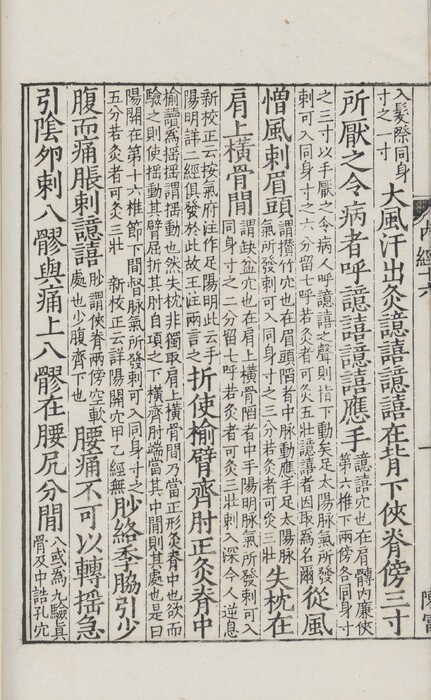 入髮際同身寸之一寸 大風汗出灸譩譆譩譆在背下俠脊傍三寸
所厭之令病者呼譩譆譩譆應手 譩譆穴也在肩髆內廉俠第六椎下兩傍各同身寸
之三寸以手厭之令病人呼譩譆之聲則指下動矣足太陽脈氣所發刺可入同身寸之六分留七呼若灸者可灸五壯譩譆者因取為名爾 從風
憎風刺眉頭 謂攢竹穴也在眉頭陷者中脈動應手足太陽脈氣所發刺可入同身寸之三分若灸者可灸三壯 失枕在
肩上橫骨間 謂缺盆穴也在肩上橫骨陷者中手陽明脈氣所發刺可入同身寸之二分留七呼若灸者可灸三壯刺入深令人逆息
新校正云按氣府注作足陽明此云手陽明詳二經俱發於此故王注兩言之 折使榆臂齊肘正灸脊中
榆讀為搖搖謂搖動也然失枕非獨取肩上橫骨間乃當正形灸脊中也欲而驗之則使搖動其臂屈折其肘自項之下橫齊肘端當其中間則其處也是曰
陽關在第十六椎節下間督脈氣所發刺可入同身寸之五分若灸者可灸三壯 新校正云詳陽關穴甲乙經無 䏚絡季脇引少
腹而痛脹刺譩譆 䏚謂俠脊兩傍空軟處也少腹齊下也 腰痛不可以轉搖急
引陰卵刺八髎與痛上八髎在腰尻分間 八或為九驗真骨及中誥孔穴